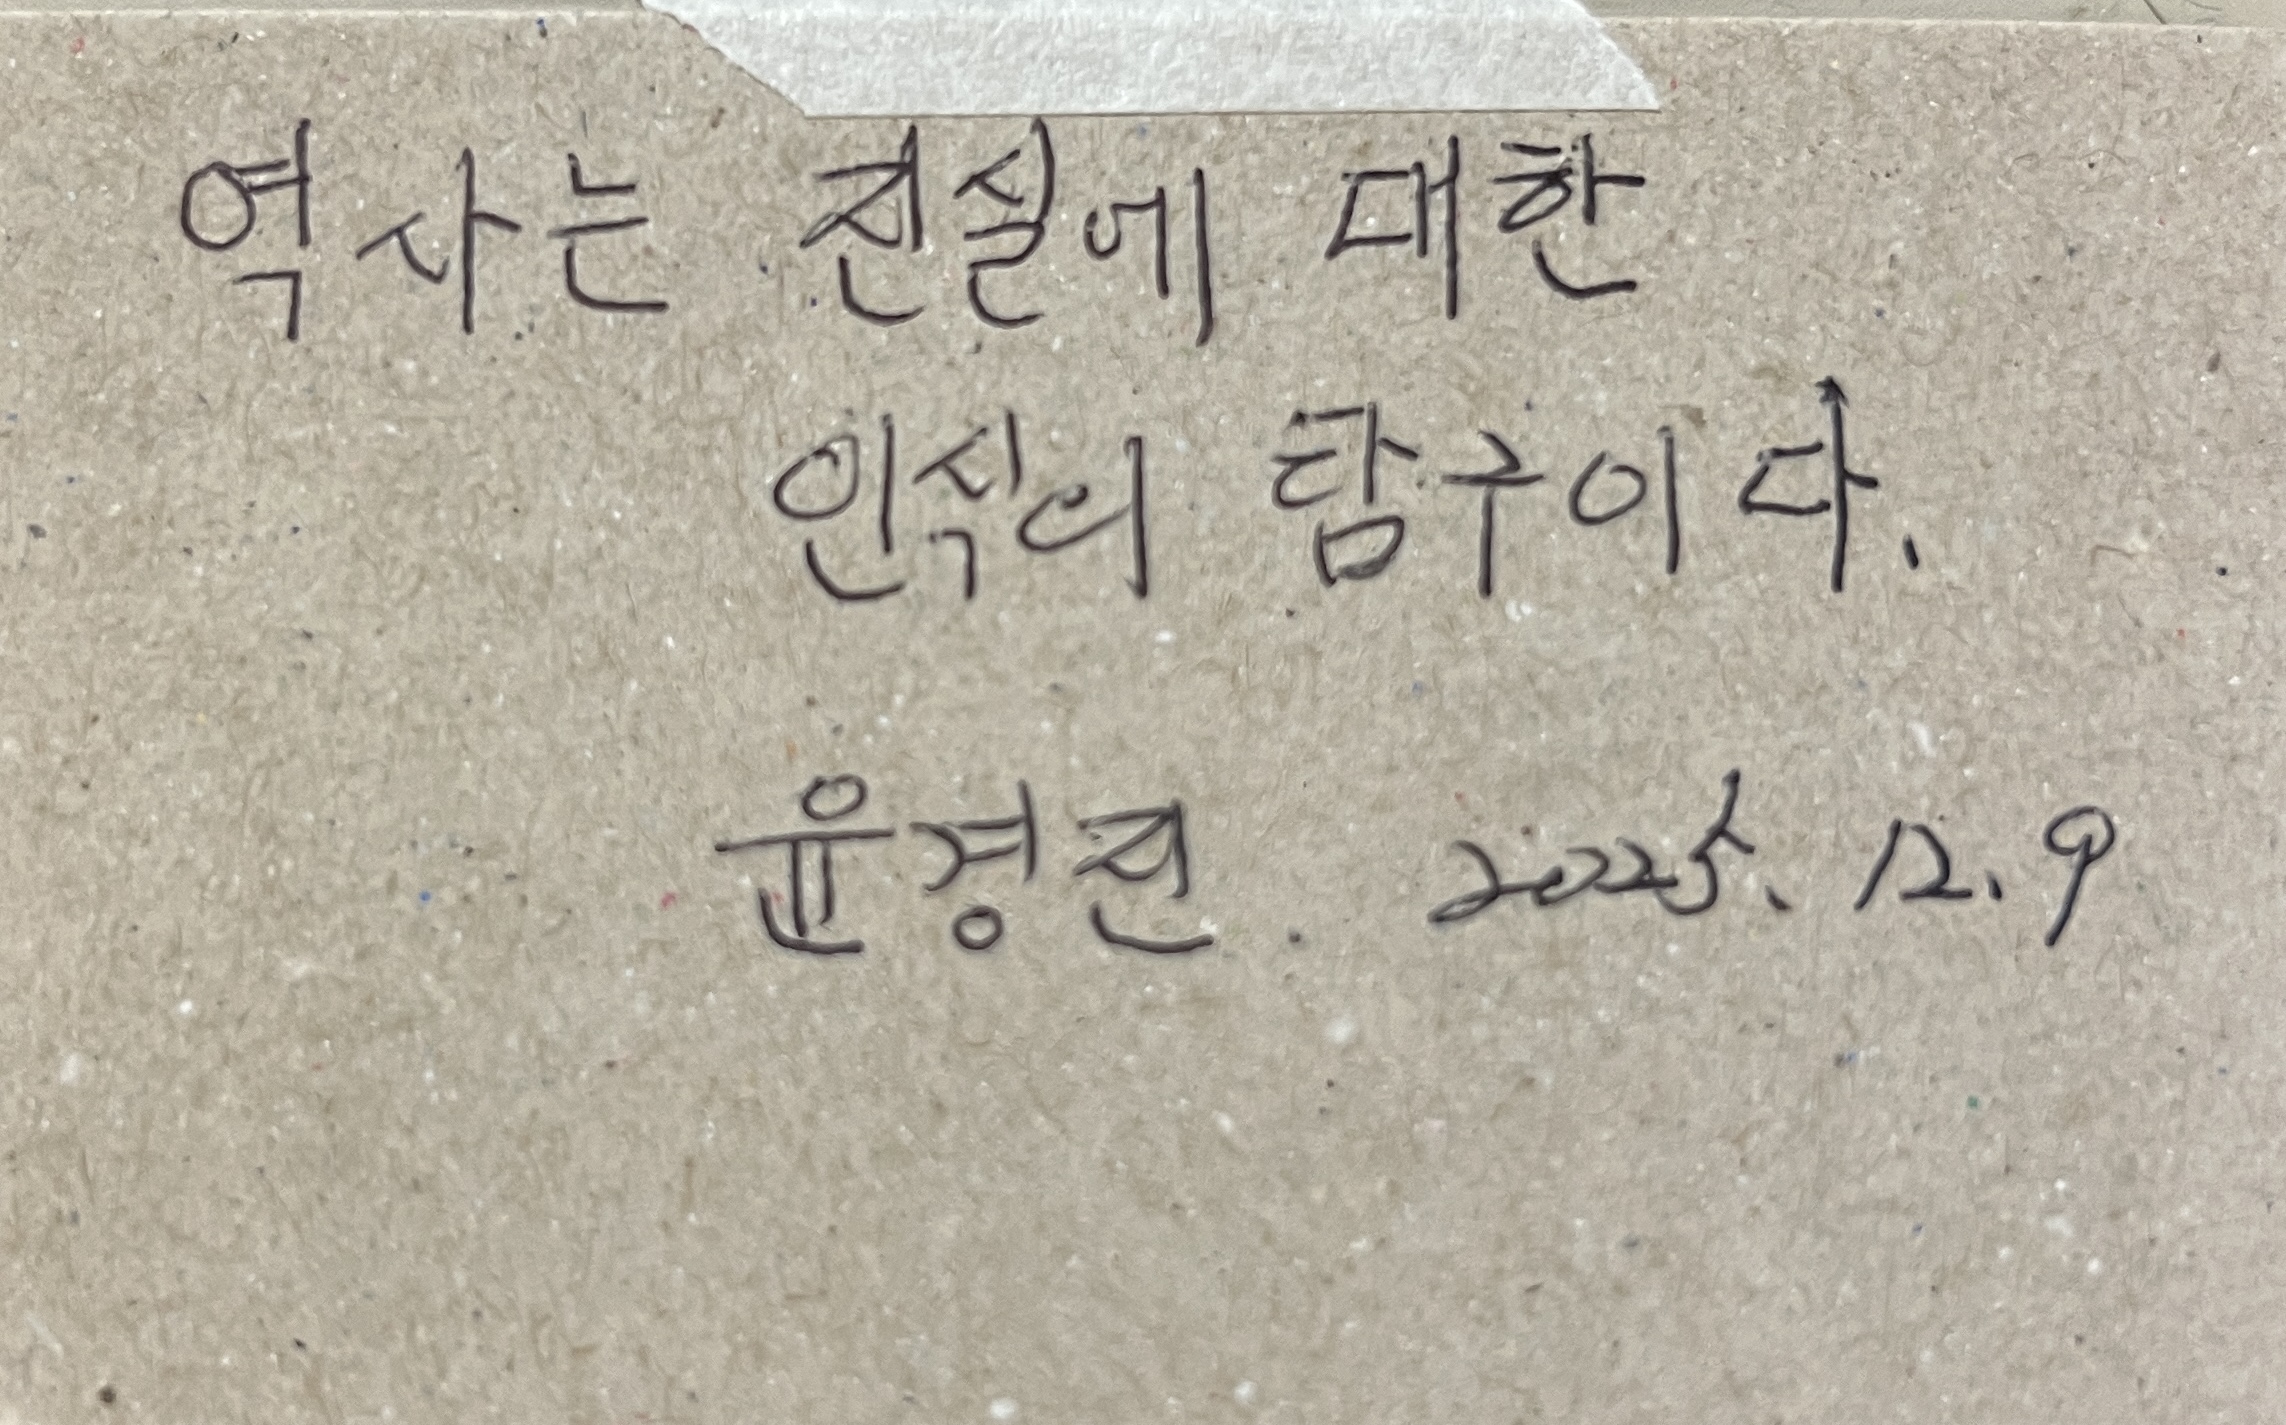 역사는 진실에 대한
인식의 탐구이다.
윤경진. 2025. 12. 9